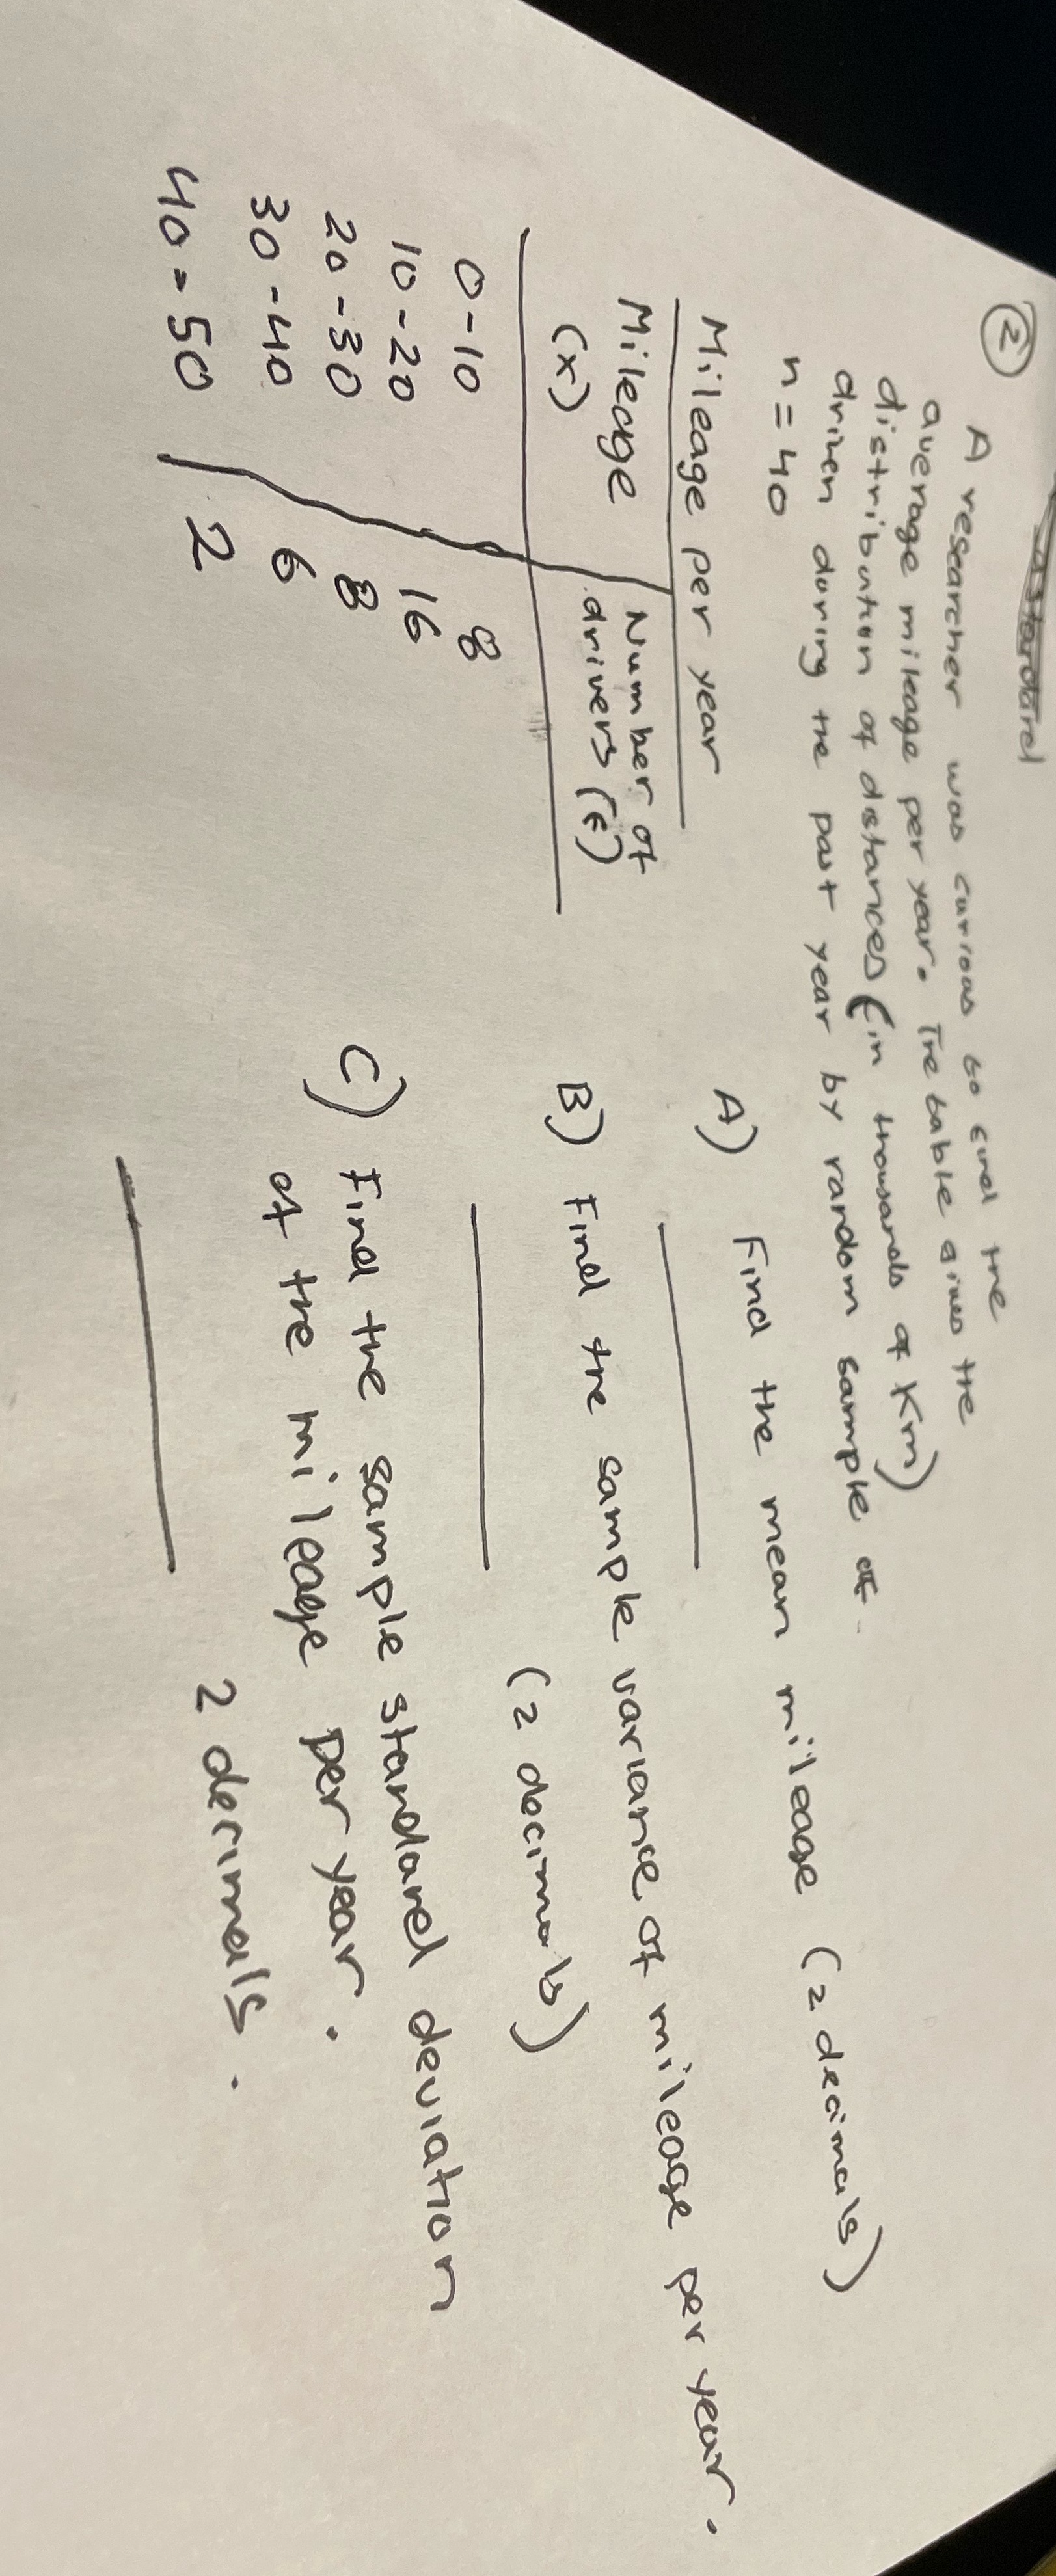 ②
A researcher was curious to find the
average mileage per year. The table gives the
distribution of distances (in thousands of Km)
driven during the past year by random sample of
n = 40
Mileage per year
Mileage (x) Number of drivers (f)
0-10 8
10-20 16
20-30 8
30-40 6
40-50 2
A) Find the mean mileage (2 decimals)
B) Find the sample variance of mileage per year.
(2 decimals)
C) Find the sample standard deviation
of the mileage per year.
2 decimals.